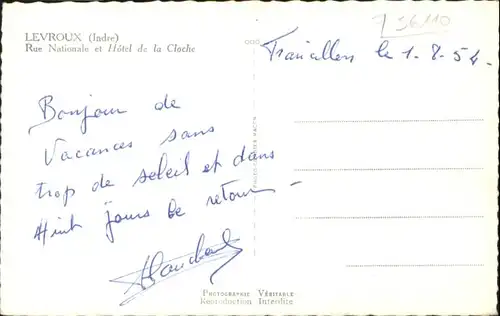 LEVROUX (Indre)
Rue Nationale et Hôtel de la Cloche
36110
Francillon le 1.8.54.
Bonjour de
Vacances sans
trop de soleil et dans
Huit jours le retour -
PHOTOGRAPHIE VÉRITABLE
Reproduction Interdite